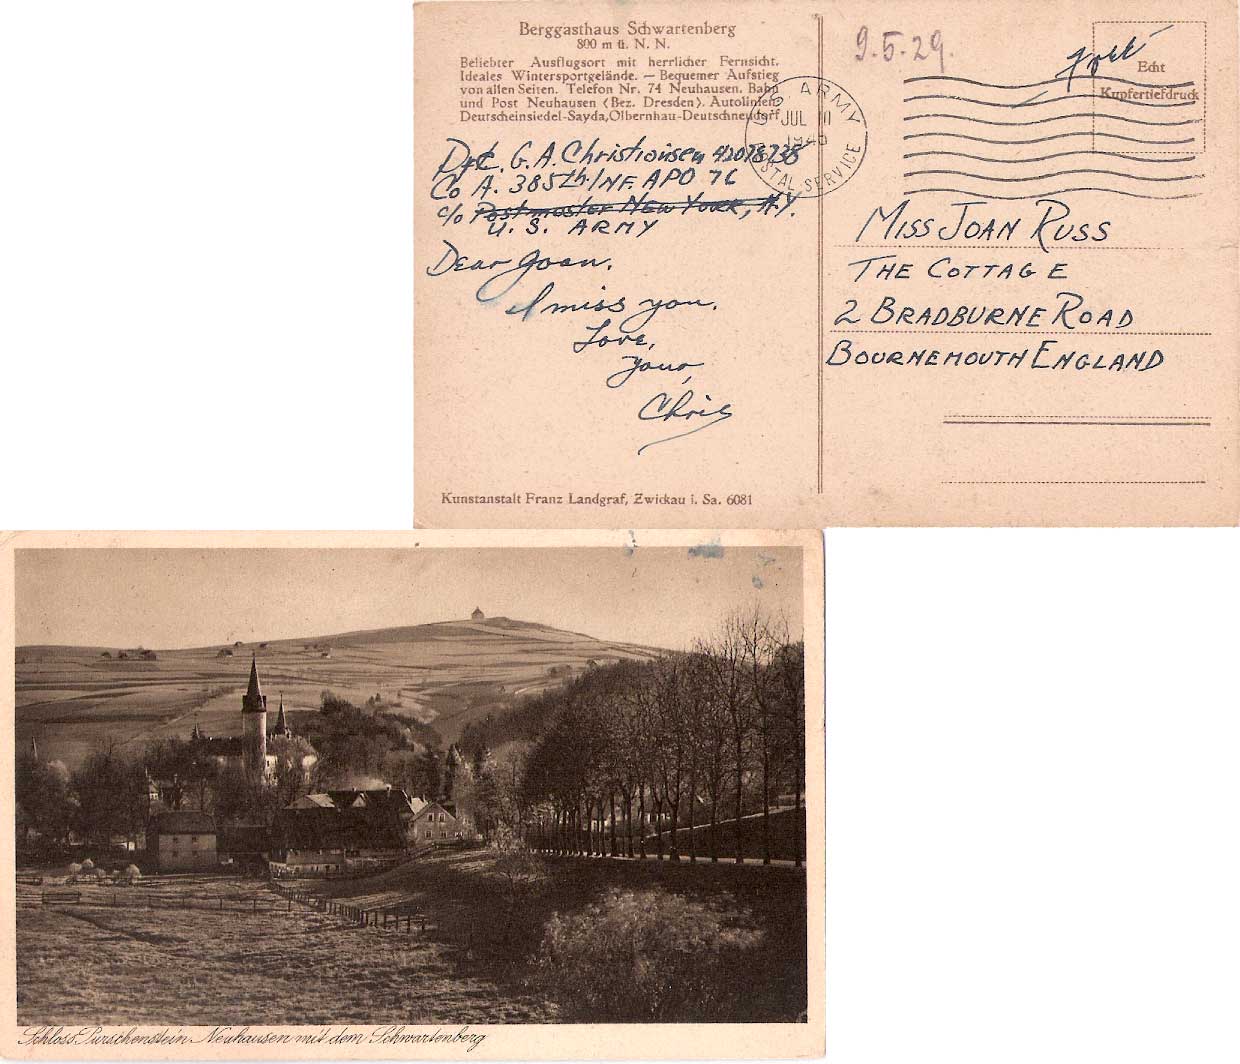 Berggasthaus Schwartenberg
800 m ü. N. N.
Beliebter Ausflugsort mit herrlicher Fernsicht.
Ideales Wintersportgelände. — Bequemer Aufstieg
von allen Seiten. Telefon Nr. 74 Neuhausen. Bahn
und Post Neuhausen (Bez. Dresden). Autolinien
Deutscheinsiedel-Sayda, Olbernhau-Deutschneudorf
9.5.29.
Echt
Kupfertiefdruck
U.S. ARMY
JUL
POSTAL SERVICE
G. A. Christiansen 42078738
Co A. 385th. INF. APO 76
c/o Postmaster New York, N.Y.
U. S. ARMY
Dear Joan.
I miss you.
Love,
Your,
Chris
MISS JOAN RUSS
THE COTTAGE
2 BRADBURNE ROAD
BOURNEMOUTH ENGLAND
Kunstanstalt Franz Landgraf, Zwickau i. Sa. 6081
Schloss Purschenstein Neuhausen mit dem Schwartenberg